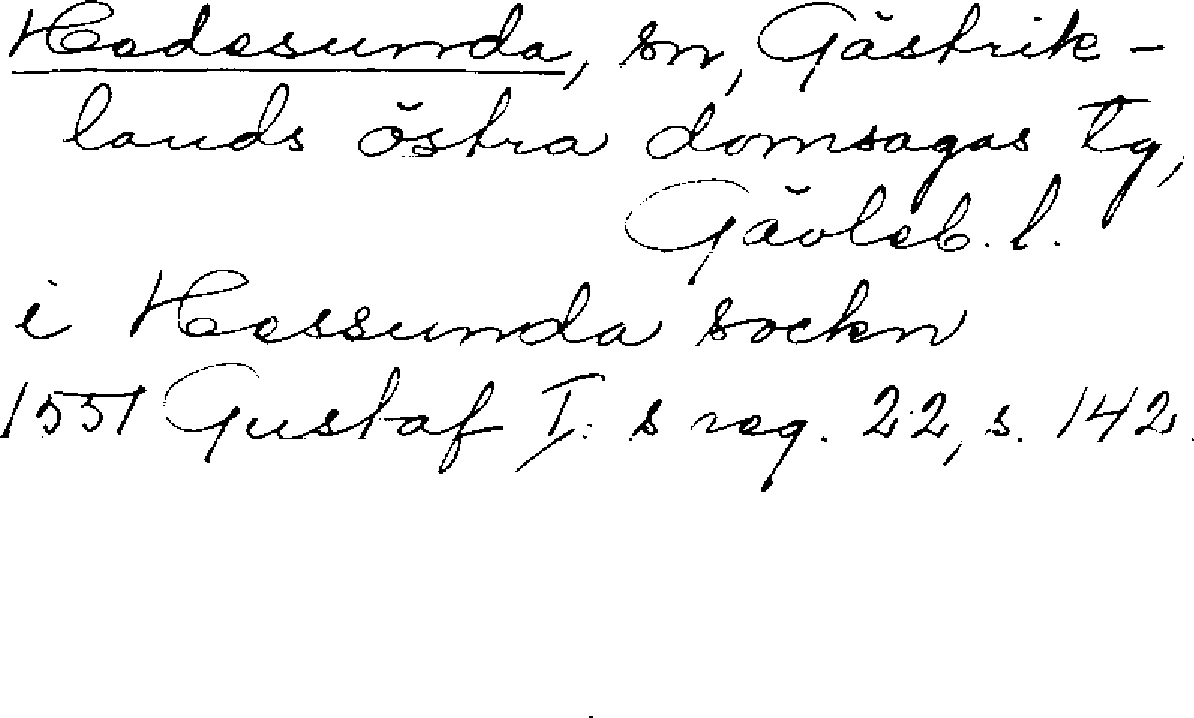 Hedesunda, sn, Gästrik-
lands östra domsagas tg,
Gävleb. l.
i Hessunda sockn
1551 Gustaf I:s reg. 22, s. 142.